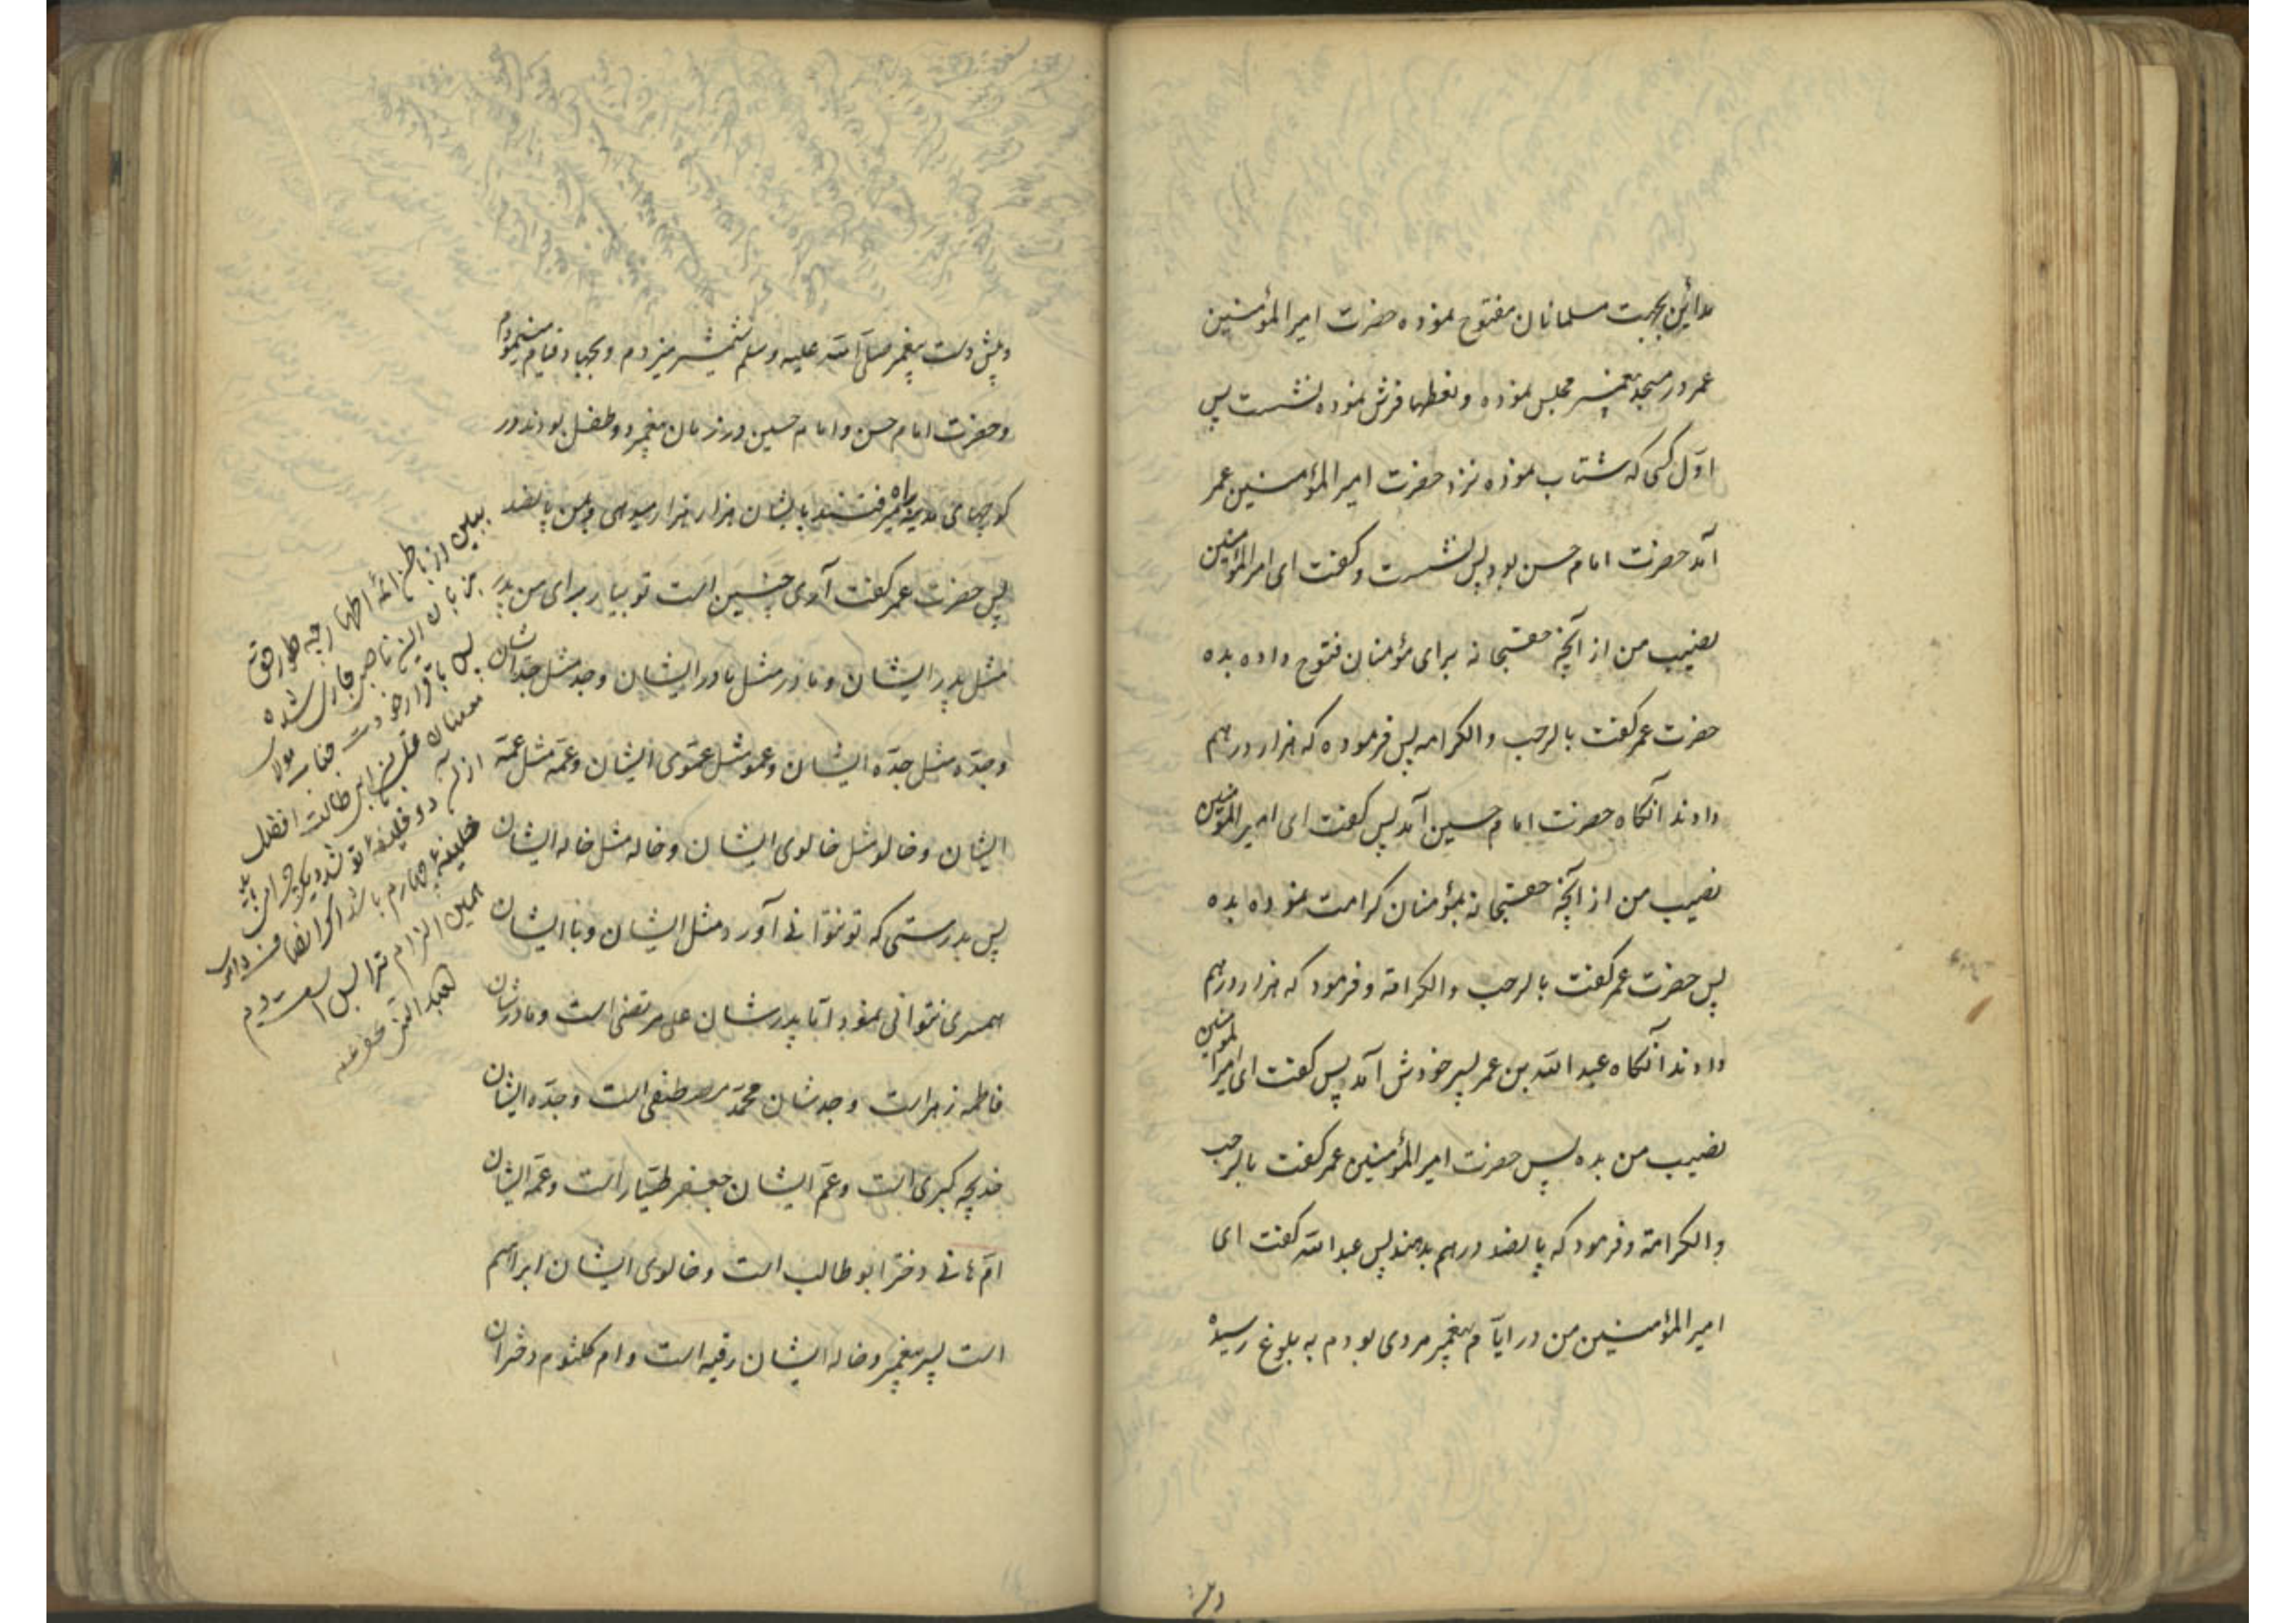 مداین بجهت مسلمانان مفتوح نموده حضرت امیر المؤمنین
عمر در مسجد پیغمبر مجلس نموده و نطعها فرش نموده نشست پس
اوّل کسی که شتاب نموده نزد حضرت امیر المؤمنین عمر
آمد حضرت امام حسن بود پس نشست و گفت ای امیر المؤمنین
نصیب من از آنچه حقسبحانه برای مؤمنان فتوح داده بده
حضرت عمر گفت بالرحب والکرامه پس فرموده که هزار درهم
دادند آنگاه حضرت امام حسین آمد پس گفت ای امیر المؤمنین
نصیب من از آنچه حقسبحانه بمؤمنان کرامت نموده بده
پس حضرت عمر گفت بالرحب والکرامة و فرمود که هزار درهم
دادند آنگاه عبد الله بن عمر پسر خودش آمد پس گفت ای امیر المؤمنین
نصیب من بده پس حضرت امیر المؤمنین عمر گفت بالرحب
والکرامة و فرمود که پانصد درهم بدهند پس عبد الله گفت ای
امیر المؤمنین من در ایّام پیغمبر مردی بودم به بلوغ رسیده
و پیش
و پیش دست پیغمبر صلّی الله علیه وسلم شمشیر میزدم و بجهاد قیام مینمودم
و حضرت امام حسن و امام حسین در زمان پیغمبر دو طفل بودند در
کوچهای مدینه راه میرفتند بایشان هزار هزار میدهی و بمن پانصد
پس حضرت عمر گفت آری چنین است تو بیار برای من پدر
مثل پدر ایشان و مادر مثل مادر ایشان و جد مثل جد ایشان
و جدّه مثل جدّه ایشان و عمو مثل عموی ایشان و عمّه مثل عمّه
ایشان و خالو مثل خالوی ایشان و خاله مثل خاله ایشان
پس بدرستی که تو نتوانی آورد مثل ایشان و با ایشان
همسری نتوانی نمود امّا پدرشان علی مرتضی است و مادرشان
فاطمه زهراست و جدشان محمّد مصطفی است و جدّه ایشان
خدیجه کبری است و عمّ ایشان جعفر طیّار است و عمّه ایشان
امّ هانی دختر ابو طالب است و خالوی ایشان ابراهیم
است پسر پیغمبر و خاله ایشان رقیه است و ام کلثوم دختران
ببین از باطن ائمه اطهار چه طور حق
بزبان این ناصبی جاری شده
پس باقرار خودت جناب مولا
علی بن ابی طالب افضل
از دو خلیفه
خلیفه چهارم باشد اگر انصاف داری
همین الزام ترا بس است